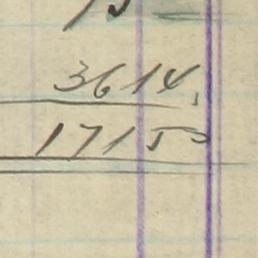 3614
17150